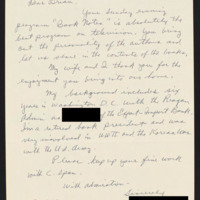 Dear Brian:
Your Sunday evening
program "Book Notes" is absolutely the
best program on television. You bring
out the personality of the authors and
let us share in the contents of the books.
My wife and I thank you for the
enjoyment you bring into our home.
My background includes six
years in Washington D.C. with the Reagan
Admin as of the Export-Import Bank.
I'm a retired bank president and was
in WWII and the Korean War
with the U.S. Army.
Please keep up your fine work
with C-Span.
With admiration,
Sincerely